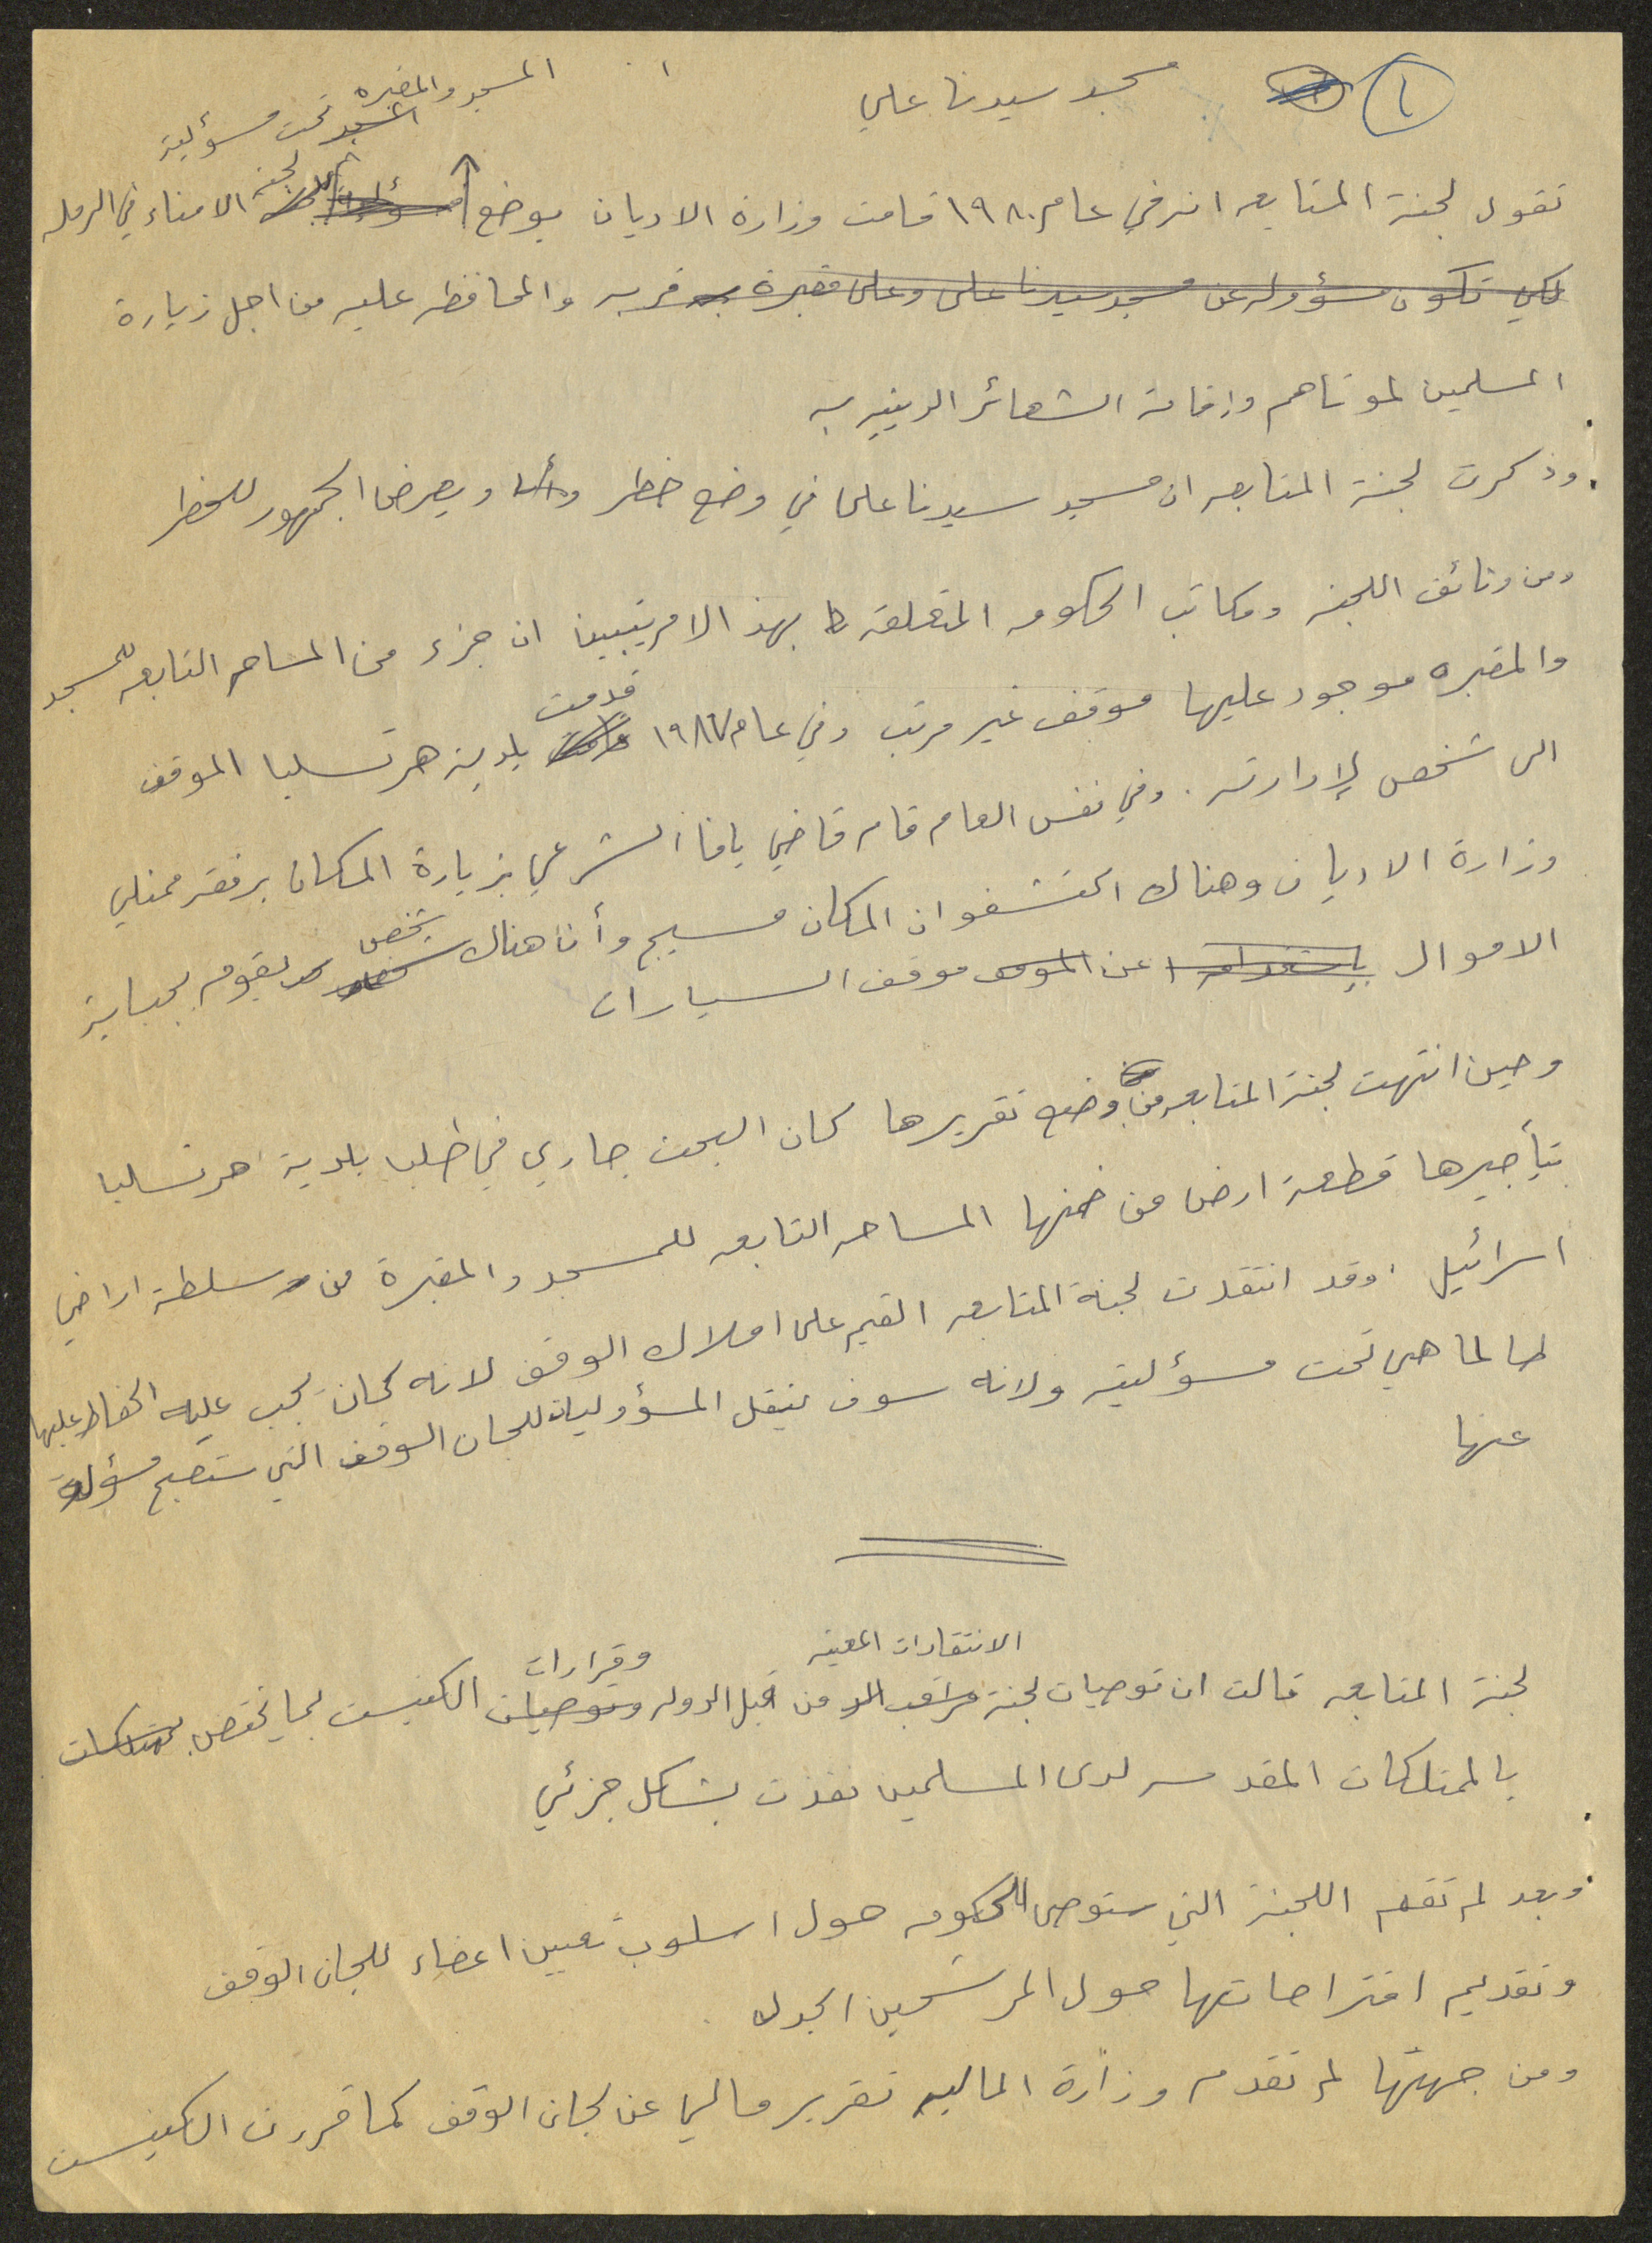 ١
مسجد سيدنا علي
المسجد والمقبره
المسجد تحت مسؤولية
تقول لجنة المتابعه انه في عام ١٩٨٠ قامت وزارة الاديان بوضع لجنة الامناء في الرمله
لكي تكون مسؤوله عن مسجد سيدنا على وعلى مقبرة قربه والمحافظه عليه من اجل زيارة
المسلمين لموتاهم وإقامة الشعائر الدينيه به
وذكرت لجنة المتابعه ان مسجد سيدنا على في وضع خطر وأنه ويعرض الجمهور للخطر
ومن وثائق اللجنه ومكاتب الحكومه المتعلقه بهذا الامر يتبين ان جزء من المساحه التابعه للمسجد
والمقبره موجود عليها موقف غير مرتب وفي عام ١٩٨٦ قدمت بلدية هرتسليا الموقف
الى شخص لإدارته. وفي نفس العام قام قاضي يافا الشرعي بزيارة المكان برفقه ممثلي
وزارة الاديان وهناك اكتشفو ان المكان مسيج وأن هناك شخص يقوم بجباية
الاموال عن موقف السيارات
وحين انتهت لجنة المتابعه من وضع تقريرها كان البحث جاري في طلب بلدية هرتسليا
بتأجيرها قطعة ارض من ضمنها المساحه التابعه للمسجد والمقبرة من سلطة اراضي
اسرائيل. وقد انتقدت لجنة المتابعه القيم على املاك الوقف لانه كان يجب عليه الحفاظ عليها
طالما هي تحت مسؤليته ولانه سوف ينقل المسؤوليات للجان الوقف التي ستصبح مسؤولة
عنها
الانتقادات المعينه وقرارات
لجنة المتابعه قالت ان توصيات لجنة مراقب من قبل الدوله وتوصيات الكنيست بما يختص
بالممتلكات المقدسه لدى المسلمين نفذت بشكل جزئي
وبعد لم تقم اللجنة التي ستوصي للحكومه حول اسلوب تعيين اعضاء للجان الوقف
وتقديم اقتراحاتها حول المرشحين الجدد
ومن جهتها لم تقدم وزارة الماليه تقرير مالي عن لجان الوقف كما قررت الكنيست